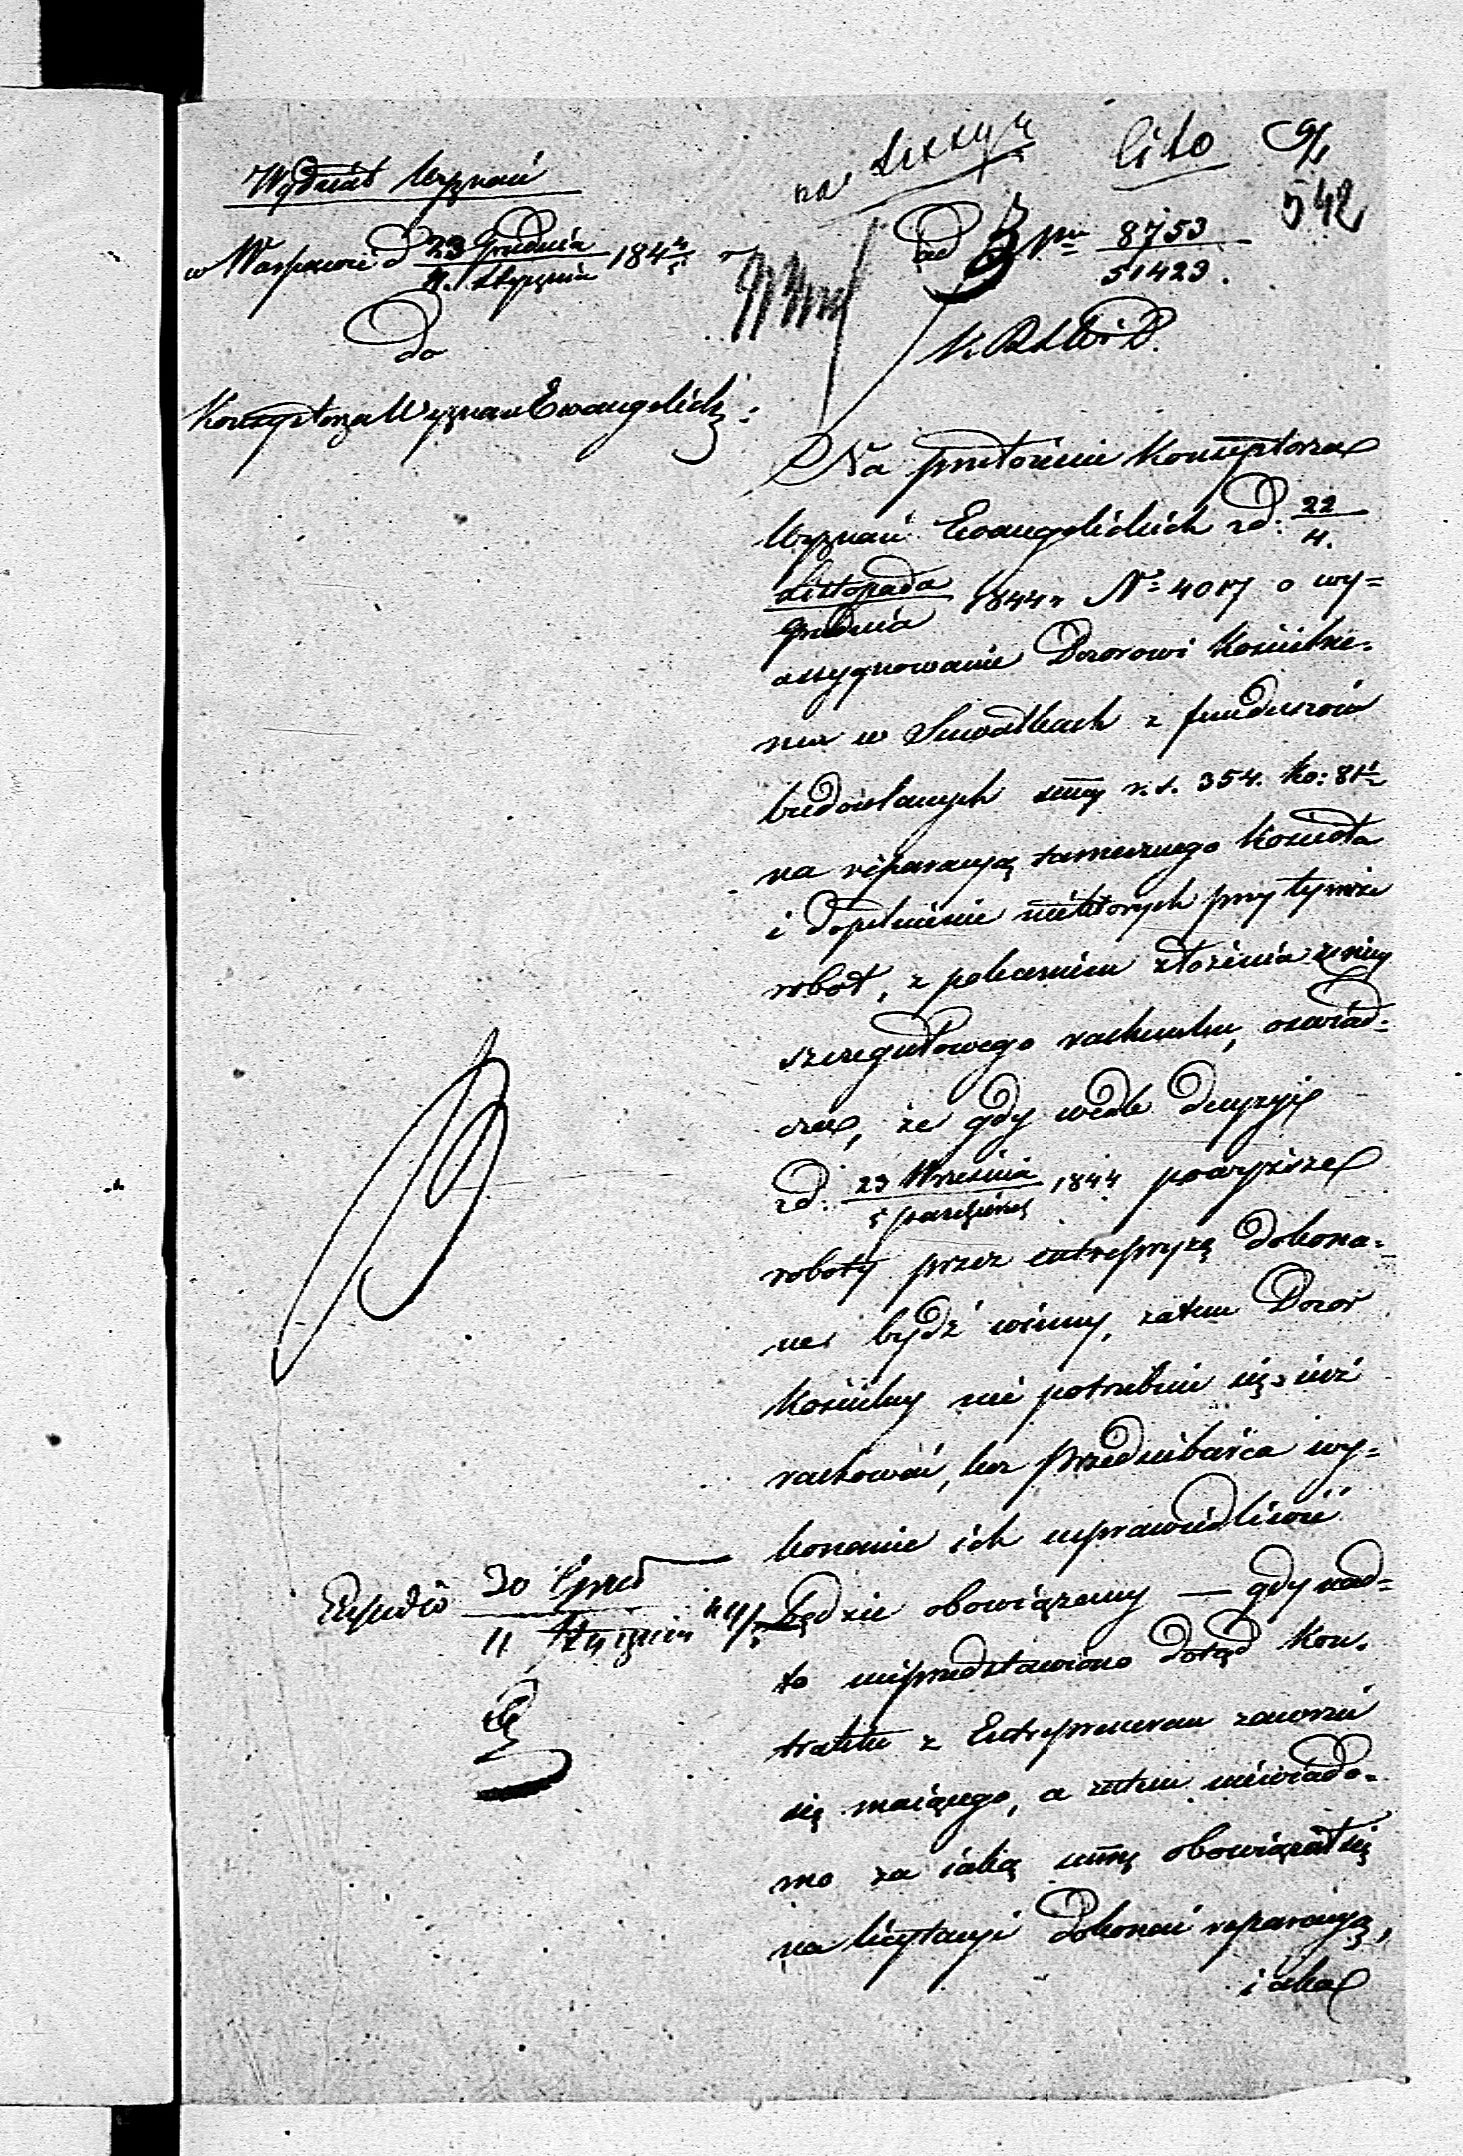 Wydział Wyznań
w Warszawie d 23 Grudnia 184 4/5 r
4. Stycznia
Do
Konsystorza Wyznań Ewangelickich
na
Cito
542
ad 3 pm 8753
51423.
K. R. S. W. i D.
Na przełożenie Konsystorza
Wyznań Ewangelickich z d. 22/4.
Listopada/Grudnia 1844 r N° 4017 o wy=
assygnowanie Dozorowi Kościelne-
mu w Suwałkach z funduszów
budowlanych summy r. s. 354. ko: 81½
na reparacyą tamecznego Kościoła
i dopełnienie niektórych przy tymże
robót, z poleceniem złożenia z niey
szczegułowego rachunku, oświad-
cza, że gdy wedle decyzyi
z d. 23 Września/5 Października 1844 powyższe
roboty przez entrepryzę dokona-
ne bydź winny, zatem Dozor
Kościelny nie potrzebuie się z nich
rachować, lecz Przedsiębiorca wy-
konanie ich usprawiedliwić
będzie obowiązany — gdy nad-
to nieprzedstawiono dotąd Kon-
traktu z Entreprenerem zawrzeć
się maiącego, a zatem niewiado-
mo za iaką summę obowiązał się
na licytacyi dokonać reparacyą,
iaka
30 Grud
11 Stycznia 44/5